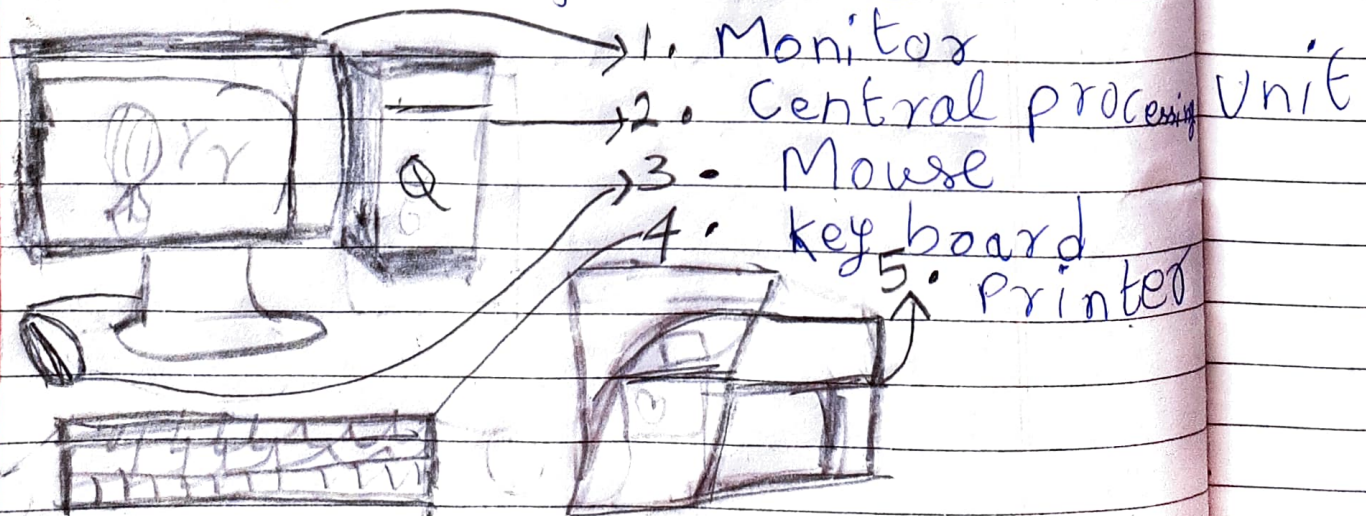 1. Monitor
2. Central processing Unit
3. Mouse
4. key board
5. Printer
Q